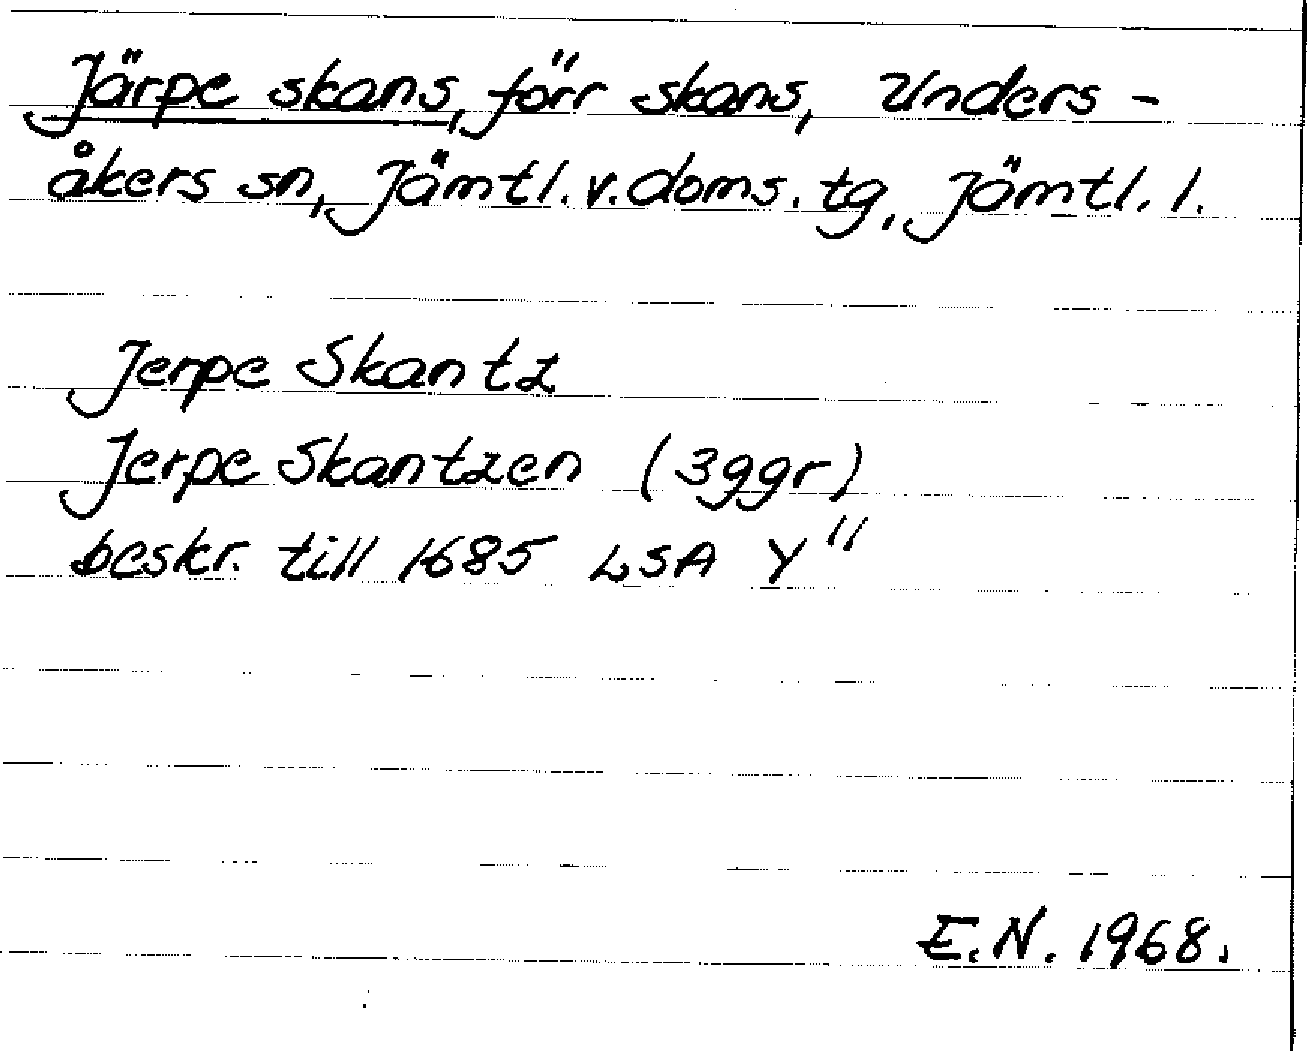 Järpe skans, förr skans, Unders-
åkers sn, Jämtl. v. doms. tg, Jämtl. l.
Jerpe Skantz
Jerpe Skantzen (3ggr)
beskr. till 1685 LSA Y"
E.N. 1968.